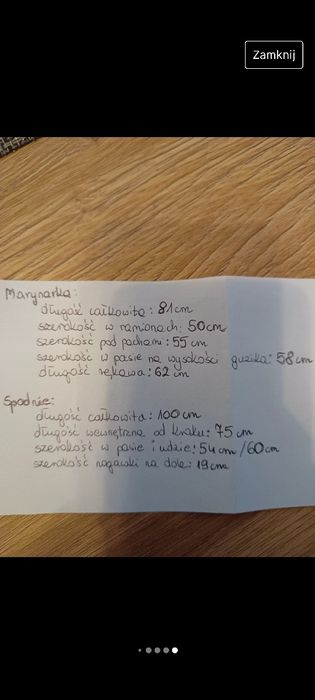 Zamknij
Marynarka:
długość całkowita: 81cm
szerokość w ramionach: 50cm
szerokość pod pachami: 55 cm
szerokość w pasie na wysokości guzika: 58 cm
długość rękawa: 62 cm
Spodnie:
długość całkowita: 100 cm
długość wewnętrzna od kroku: 75 cm
szerokość w pasie i udzie: 54 cm/60cm
szerokość nogawki na dole: 19cm